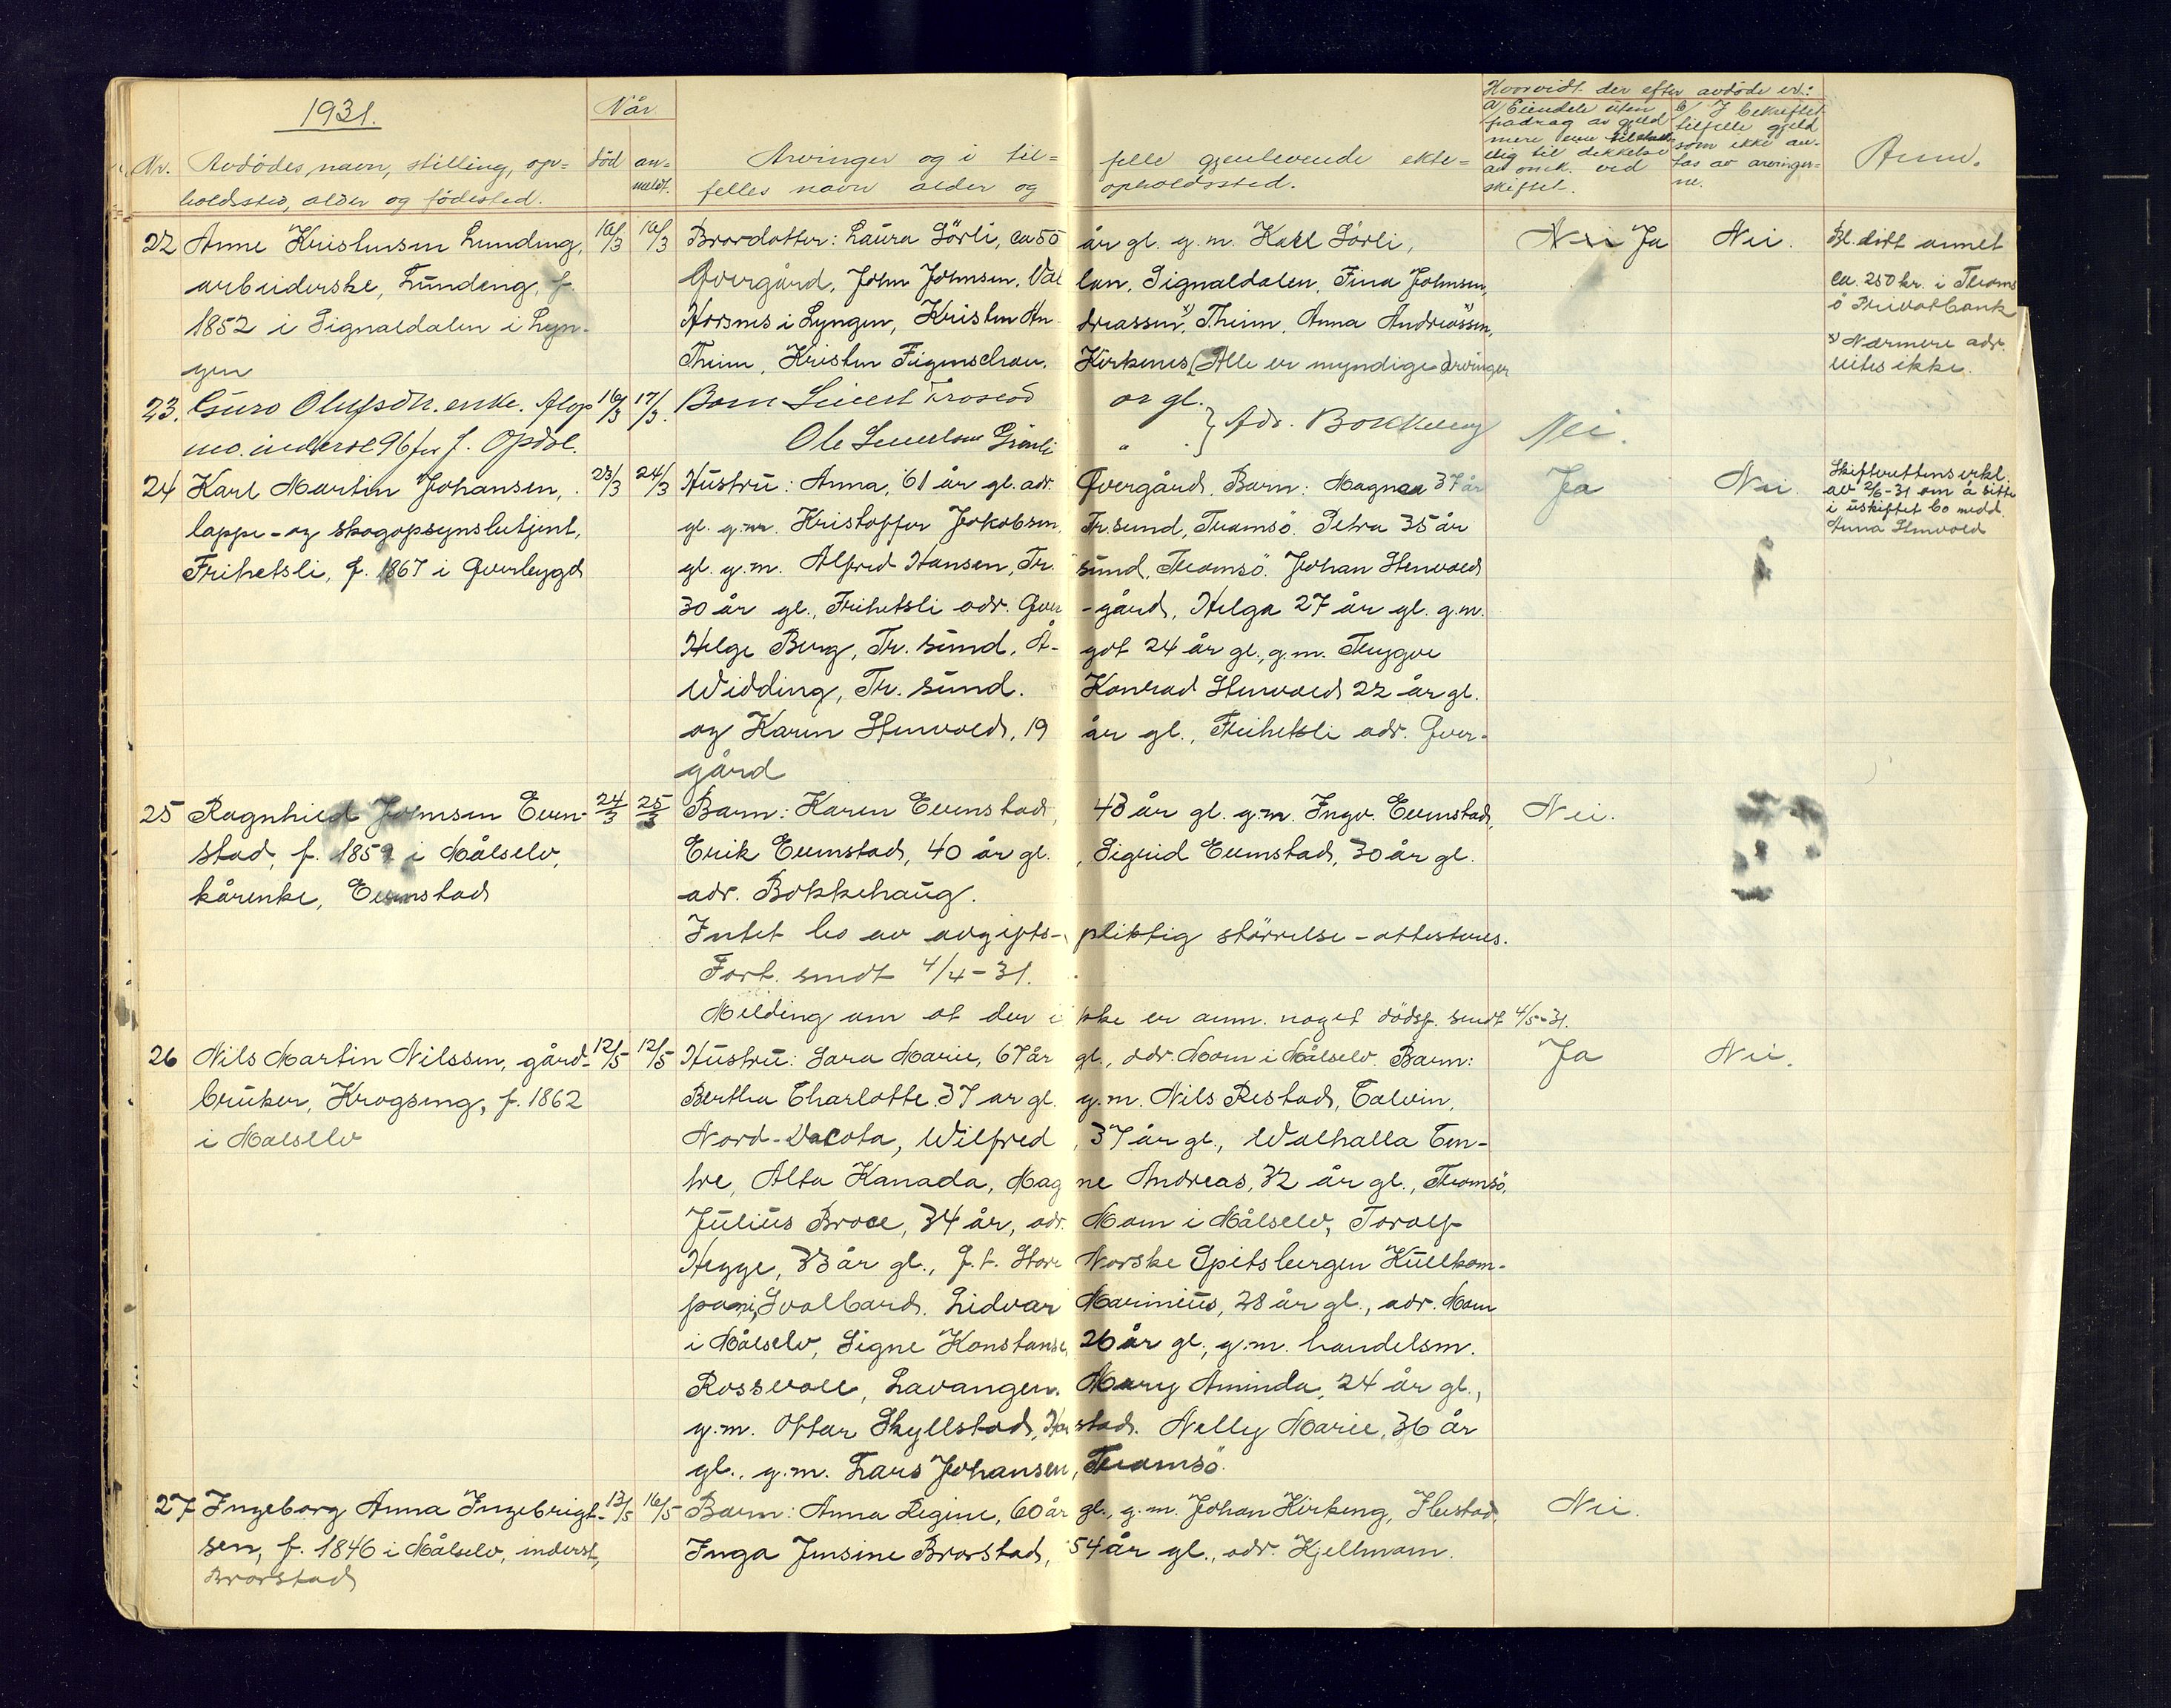 1931.
Når
Hvorvidt der efter avdöde er:
Nr. Avdödes navn, stilling, op=
holdssted, alder og födested.
död
an=
meldt.
Arvinger og i til= felle gjenlevende ekte=
felles navn alder og opholdssted.
a/ Eiendele uten
fradrag av gjeld
mere enn tilstrekke
elig til dekkelse
av omk. ved
skiftet.
b/ I bekreftet
tilfelle gjeld
som ikke an-
tas av arvinger=
ne.
Anm.
22 Anne Kristensen Lundeng, 16/3 16/3 Brordatter: Laura Sörli, ca 55 år gl. g.m. Karl Sörli, Nei Ja Nei. Bl. dödt annet
arbeiderske, Lundeng, f. Övergård, John Johnsen, Val lan, Signaldalen, Fina Johnsen, ca. 250 kr. i Troms
1852 i Signaldalen i Lyn- Horsnes i Lyngen, Kristen An dreassen, x) Theim, Anna Andreassen, x) ö Privatbank
gen Theim, Kristen Figenschau, Kirkenes (Alle er myndige arvinger x) Nærmere adr. vites ikke.
23. Guro Olufsdtr. enke. 16/3 17/3. Barn Sivert Froseth år gl. } Adr. Bokkehaug Nei.
mo. inderst 96 år f. Opdal. Ole Sivertsen Grönli "
24 Karl Martin Johansen, 23/3 24/3 Hustru: Anna, 61 år gl. adr. Övergård. Barn: Magna 37 år Ja Nei. Skifterettens erkl.
lappe- og skogopsynsbetjent, gl. g.m. Kristoffer Jakobsen, Tr.sund, Tromsö. Petra 35 år av 2/6-31 om å sitte i uskiftet bo medd.
Frihetsli, f. 1867 i Överbygd gl. g.m. Alfred Hansen, Tr. sund, Tromsö. Johan Stenvold Anna Stenvold
30 år gl., Frihetsli adr. Över -gård, Helga 27 år gl. g.m.
Helge Berg, Tr. sund, Å- got 24 år gl., g.m. Trygve
Widding, Tr. sund. Konrad Stenvold 22 år gl.
og Karen Stenvold, 19 år gl., Frihetsli adr. Över-
gård
25 Ragnhild Johnsen Even- 24/3 25/3 Barn: Karen Evenstad, 43 år gl. g.m. Ingv. Evenstad, Nei.
stad, f. 1859 i Målselv, Erik Evenstad, 40 år gl. , Sigrid Evenstad, 30 år gl.
kårenke, Evenstad adr. Bokkehaug.
Intet bo av avgifts- pliktig störrelse - attesteres.
Fort. sendt 4/4-31.
Melding om at der i kke er anm. noget dödsf. sendt 4/5-31.
26 Nils Martin Nilssen, gård- 12/5 12/5 Hustru: Sara Marie, 67 år gl., adr. Moen i Målselv. Barn: Ja Nei.
bruker, Krogseng, f. 1862 Bertha Charlotte 37 år gl. g.m. Nils Restad, Calvin,
i Målselv Nord-Dacota, Wilfred , 37 år gl., Walhalla Cen-
tre, Alta Kanada, Mag ne Andreas, 32 år gl., Tromsö,
Julius Broce, 34 år, adr. Moen i Målselv, Toralf
Hegge, 33 år gl., f.t. Store Norske Spitsbergen Kullkom-
pani, Svalbard. Lidvar Marinius, 28 år gl., adr. Moen
i Målselv, Signe Konstanse, 26 år gl., g.m. handelsm.
Rossvoll, Lavangen. Mary Aminda, 24 år gl.,
g.m. Ottar Skyllstad, Har stad. Nelly Marie, 36 år
gl., g.m. Lars Johansen, Tromsö.
27 Ingeborg Anna Ingebrigt- 13/5 16/5 Barn: Anna Regine, 60 år gl., g.m. Johan Kirkeng, Ilustad, Nei.
sen, f. 1846 i Målselv, inderst, Inga Jensine Brorstad, 54 år gl., adr. Kjellmoen.
Brorstad